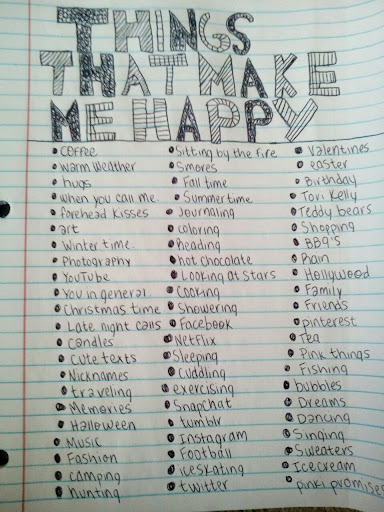 THINGS
THAT MAKE
ME HAPPY
• coffee
• warm weather
• hugs
• when you call me.
• forehead kisses
• art
• Winter time.
• Photography
• YouTube
• You in general.
• Christmas time
• Late night calls
• Candles
• Cute texts
• Nicknames
• traveling
• Memories
• Halloween
• Music
• Fashion
• camping
• hunting
• Sitting by the fire
• Smores
• Fall time
• Summertime.
• Journaling
• coloring
• Reading
• hot chocolate
• Looking at Stars
• Cooking
• Showering
• Facebook
• Netflix
• Sleeping
• cuddling
• exercising
• Snapchat
• tumblr
• Instagram
• Football
• iceskating
• twitter
• Valentines
• easter
• Birthday
• Tori Kelly
• Teddy bears
• Shopping
• BBQ's
• Rain
• Hollywood
• Family
• Friends
• pinterest
• Tea
• Pink things
• Fishing
• bubbles
• Dreams
• Dancing
• Singing
• Sweaters
• Icecream
• pinki promises